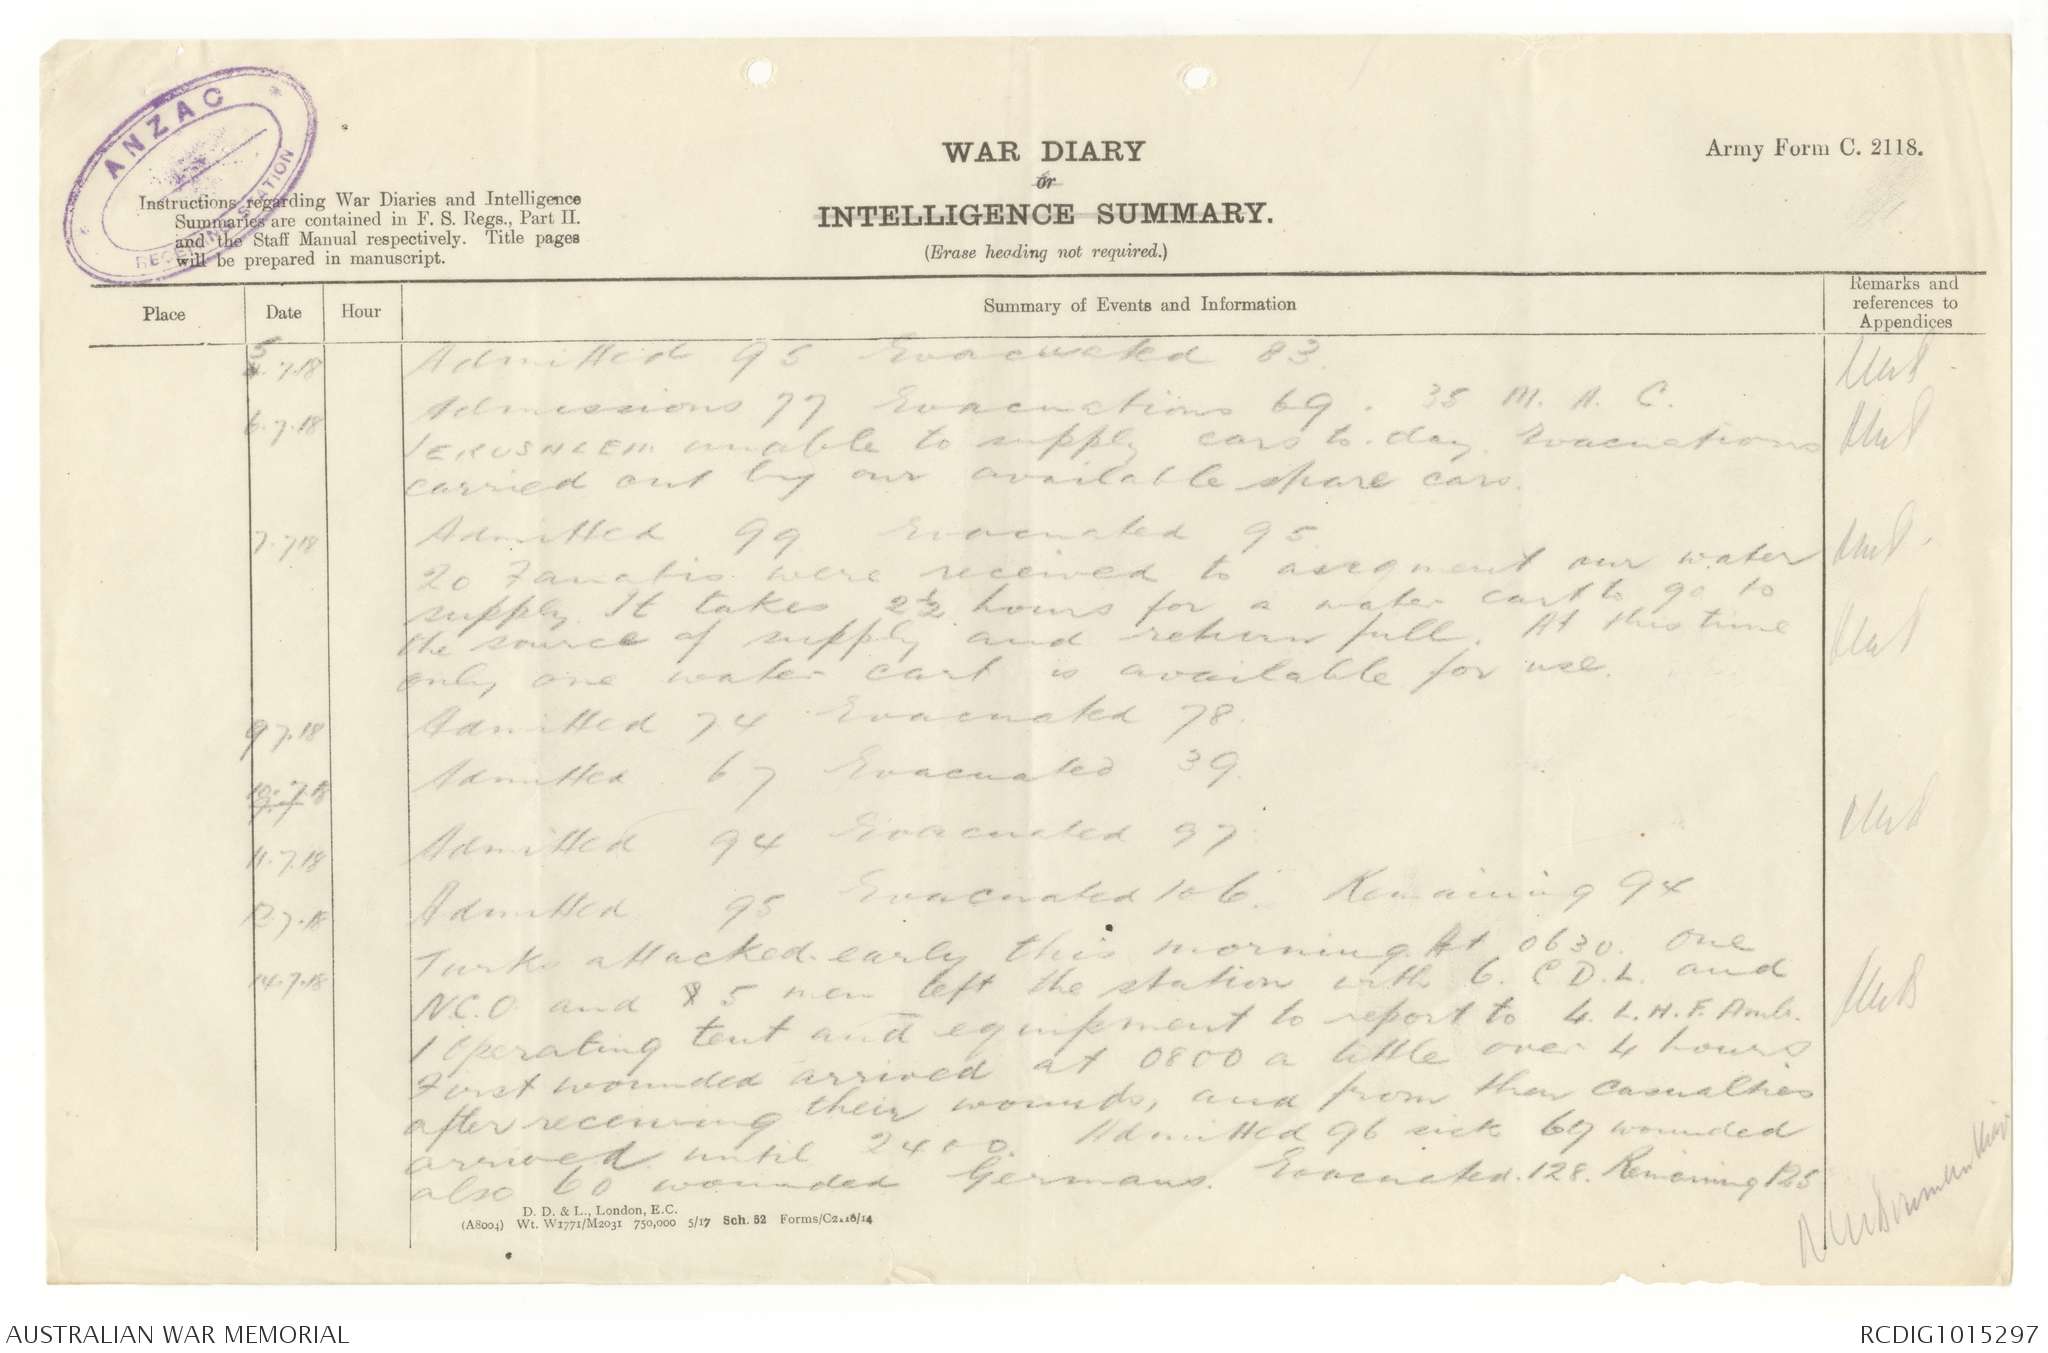 ANZAC
RECEIVING STATION
Instructions regarding War Diaries and Intelligence
Summaries are contained in F. S. Regs., Part II.
and the Staff Manual respectively. Title pages
will be prepared in manuscript.
WAR DIARY
or
INTELLIGENCE SUMMARY.
(Erase heading not required.)
Army Form C. 2118.
Place
Date
Hour
Summary of Events and Information
Remarks and
references to
Appendices
5.7.18 Admitted 95 Evacuated 83.
6.7.18 Admissions 77 Evacuations 69. 35 M. A. C.
JERUSALEM unable to supply cars to-day. Evacuations
carried out by our available spare cars.
7.7.18 Admitted 99 Evacuated 95
20 Fanatis were received to augment our water
supply. It takes 2½ hours for a water cart to go to
the source of supply and return full. At this time
only one water cart is available for use.
9.7.18 Admitted 74 Evacuated 78.
10.7.18 Admitted 67 Evacuated 39.
11.7.18 Admitted 94 Evacuated 97
12.7.18 Admitted 95 Evacuated 106. Remaining 94
14.7.18 Turks attacked early this morning. At 0630 one
N.C.O. and 5 men left the station with 6. C D.L. and
1 Operating tent and equipment to report to 4. L.H.F. Amb.
First wounded arrived at 0800 a little over 4 hours
after receiving their wounds, and from then casualties
arrived until 2400. Admitted 96 sick 69 wounded
also 60 wounded Germans. Evacuated. 128. Remaining 125
D. D. & L., London, E.C.
(A8004) Wt. W1771/M2031 750,000 5/17 Sch. 52 Forms/C2118/14
AUSTRALIAN WAR MEMORIAL
RCDIG1015297